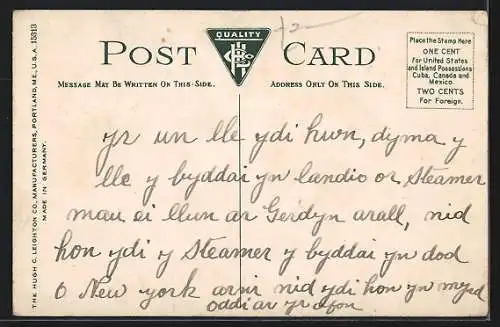 +2-
QUALITY
POST CARD
MESSAGE MAY BE WRITTEN ON THIS SIDE.
ADDRESS ONLY ON THIS SIDE.
Place the Stamp Here
ONE CENT
For United States
and Island Possessions
Cuba, Canada and
Mexico.
TWO CENTS
For Foreign.
THE HUGH C. LEIGHTON CO., MANUFACTURERS, PORTLAND, ME., U.S.A. 15313
MADE IN GERMANY.
yr un lle ydi hwn, dyma y
lle y byddai yn landio or Steamer
mau ei llun ar Gerdyn arall, nid
hon ydi y Steamer y byddai yn dod
o New york arni nid ydi hon yn mynd
oddiar yr afon